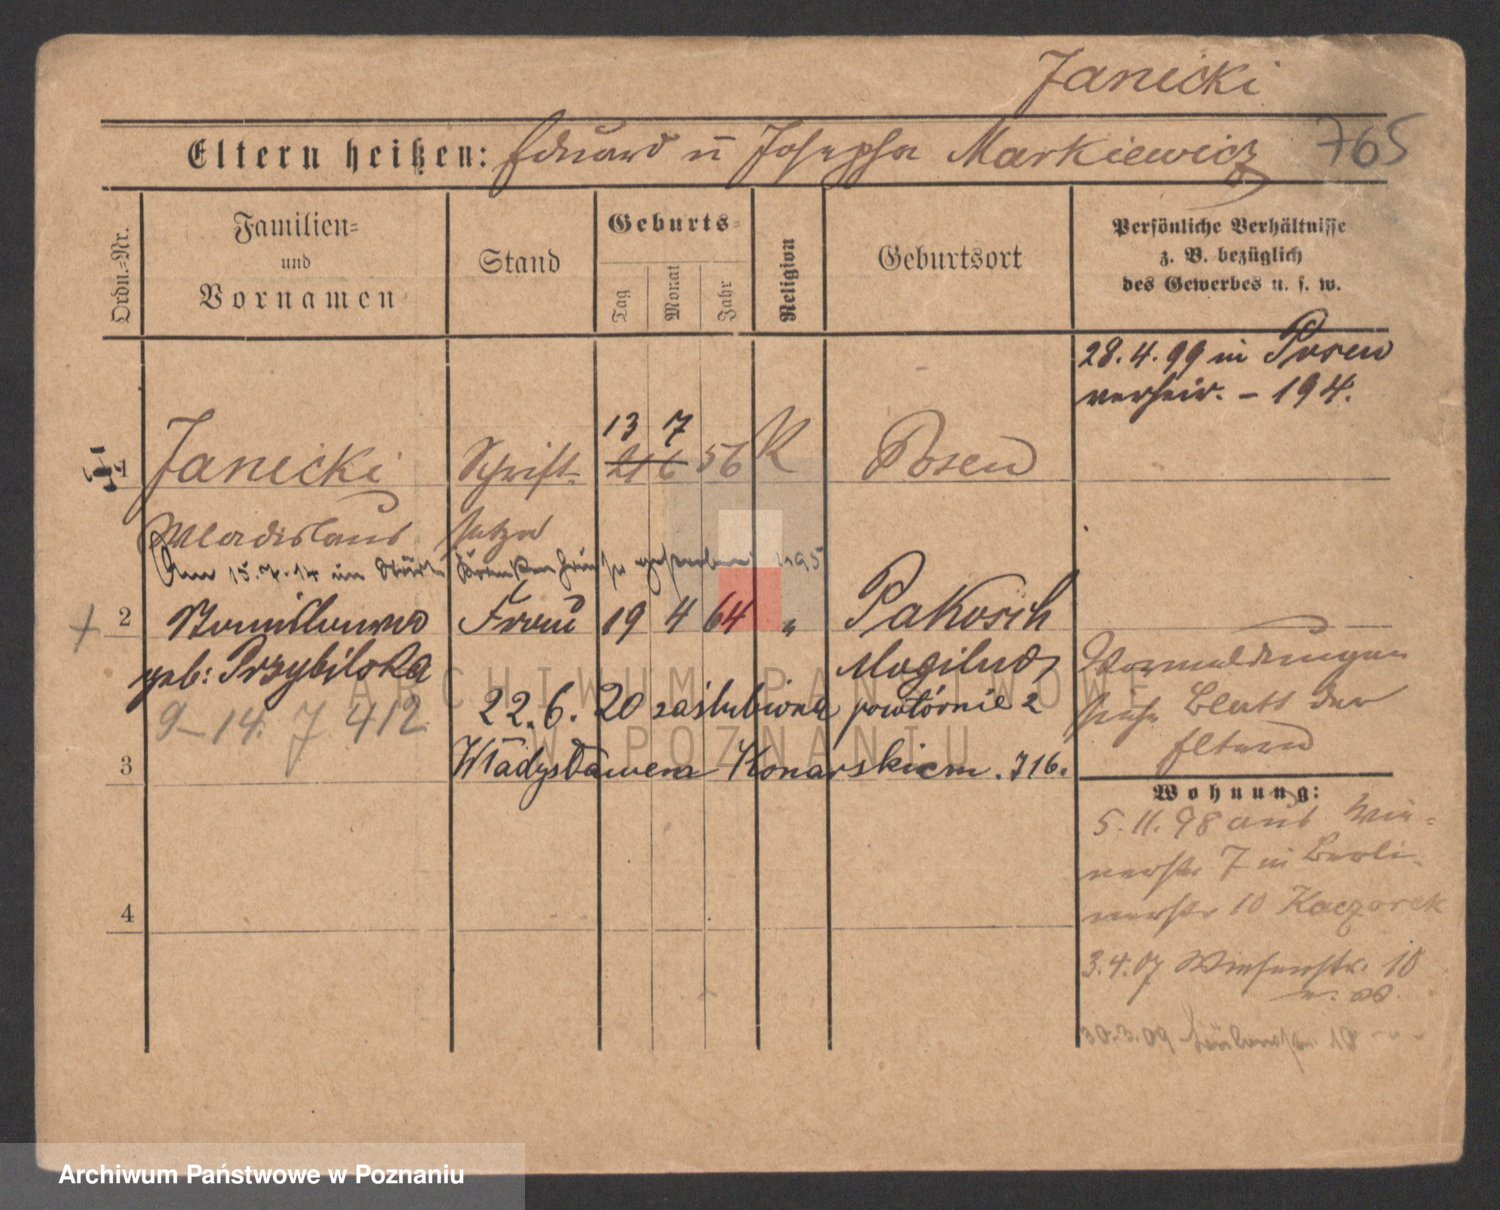 Janicki
Eltern heißen: Eduard u Josepha Markiewicz
765
Ordn.-Nr.
Familien-
und
Vornamen
Stand
Geburts-
Tag
Monat
Jahr
Religion
Geburtsort
Persönliche Verhältnisse
z. B. bezüglich
des Gewerbes u. s. w.
28.4.99 in Posen
verheir. - 194.
13 7
1 Janicki Schrift- 21 6 56 K Posen
Wladislaus setzer
Am 15.7.14 im Städt. Krankenhaus gestorben 1195
2 Stanislawa Frau 19 4 64 " Pakosch
geb: Przybilska Mogilno
Vormeldungen
siehe Blatt der
Eltern
9-14. 7 412
22.6.20 zaślubiona powtórnie z
3 Władysławem Konarskiem. 716.
4
Wohnung:
5.11.98 aus
7 in Berli-
nerstr 10 Kaczorek
3.4.07 Wiesenstr. 10
30.3.09 18
ARCHIWUM PAŃSTWOWE
W POZNANIU
Archiwum Państwowe w Poznaniu